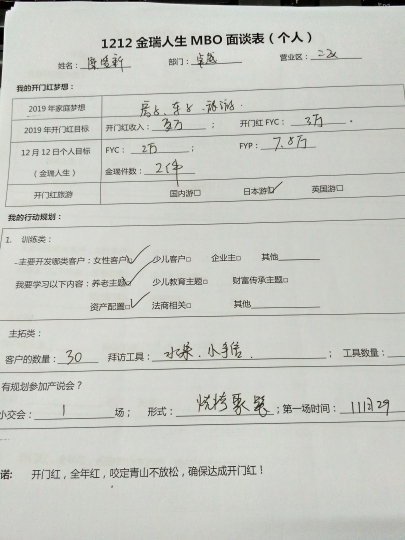 1212 金瑞人生 MBO 面谈表（个人）
姓名： 部门： 营业区：二区
我的开门红梦想：
2019 年家庭梦想 房子、车子、旅游
2019 年开门红目标 开门红收入：五万； 开门红 FYC：3万。
12 月 12 日个人目标 FYC：2万； FYP：7.8万
（金瑞人生） 金瑞件数：2件
开门红旅游 国内游□ 日本游☑ 英国游□
我的行动规划：
1. 训练类：
-主要开发哪类客户：女性客户☑ 少儿客户□ 企业主□ 其他
我要学习以下内容：养老主题☑ 少儿教育主题□ 财富传承主题□
资产配置☑ 法商相关□ 其他
主拓类：
客户的数量：30 拜访工具：水果、小手信、； 工具数量：
有规划参加产说会？
小交会：1 场； 形式：烧烤聚餐；第一场时间：11月29
诺: 开门红，全年红，咬定青山不放松，确保达成开门红！